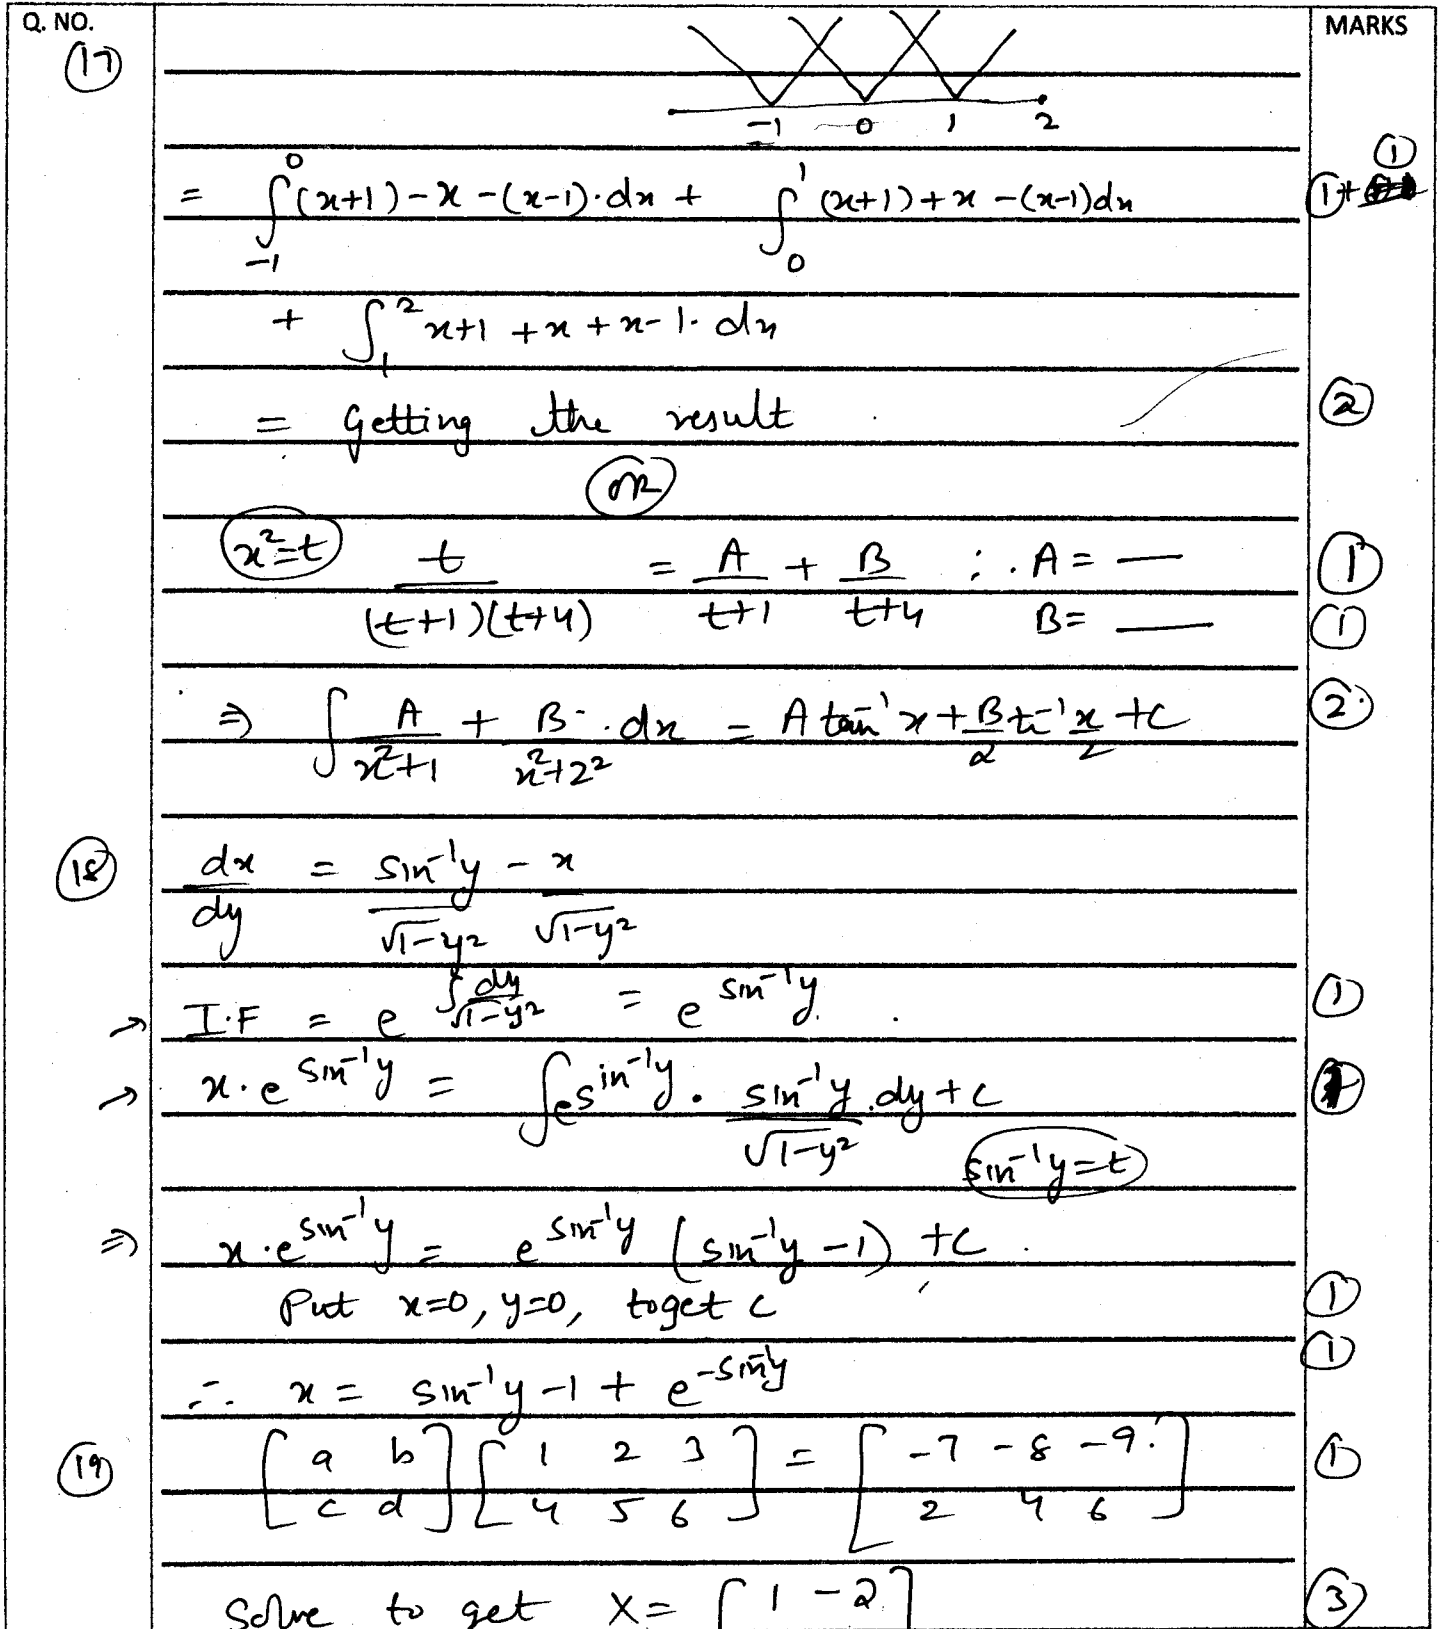 Q. NO. MARKS
(17)
-1 0 1 2
(1)
= ∫₋₁⁰ (x+1) - x - (x-1)·dx + ∫₀¹ (x+1) + x - (x-1)dx (1)+
+ ∫₁² x+1 + x + x-1· dx
= Getting the result (2)
(OR)
(x²=t) t/((t+1)(t+4)) = A/(t+1) + B/(t+4) ; . A = — (1)
B = — (1)
⇒ ∫ A/(x²+1) + B/(x²+2²) ·dx = A tan⁻¹x + B/2 t⁻¹ x/2 + C (2)
(18) dx/dy = sin⁻¹y/√1-y² - x/√1-y²
→ I.F = e^∫dy/√1-y² = e^sin⁻¹y. (1)
→ x·e^sin⁻¹y = ∫e^sin⁻¹y · sin⁻¹y/√1-y² .dy + c (1)
(sin⁻¹y=t)
⇒ x·e^sin⁻¹y = e^sin⁻¹y (sin⁻¹y - 1) + C .
Put x=0, y=0, toget c (1)
∴ x = sin⁻¹y - 1 + e^-sin⁻¹y (1)
(19) [a b; c d] [1 2 3; 4 5 6] = [-7 -8 -9; 2 4 6] (1)
Solve to get X = [1 -2] (3)